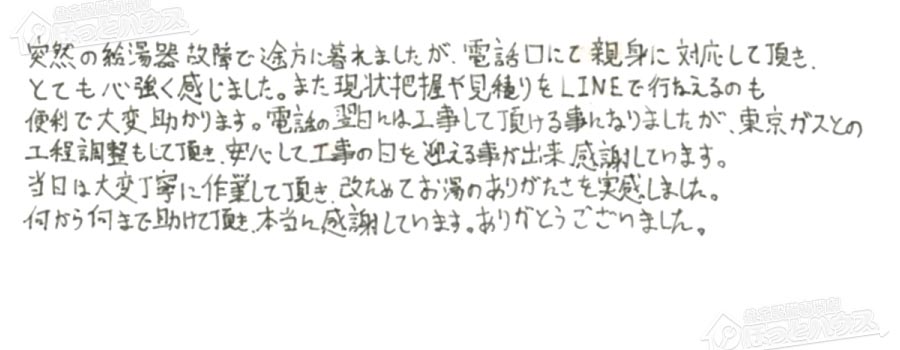 突然の給湯器故障で途方に暮れましたが、電話口にて親身に対応して頂き、
とても心強く感じました。また現状把握や見積りをLINEで行なえるのも
便利で大変助かります。電話の翌日には工事して頂ける事になりましたが、東京ガスとの
工程調整もして頂き、安心して工事の日を迎える事が出来、感謝しています。
当日は大変丁寧に作業して頂き、改ためてお湯のありがたさを実感しました。
何から何まで助けて頂き、本当に感謝しています。ありがとうございました。
ほっとハウス
ほっとハウス